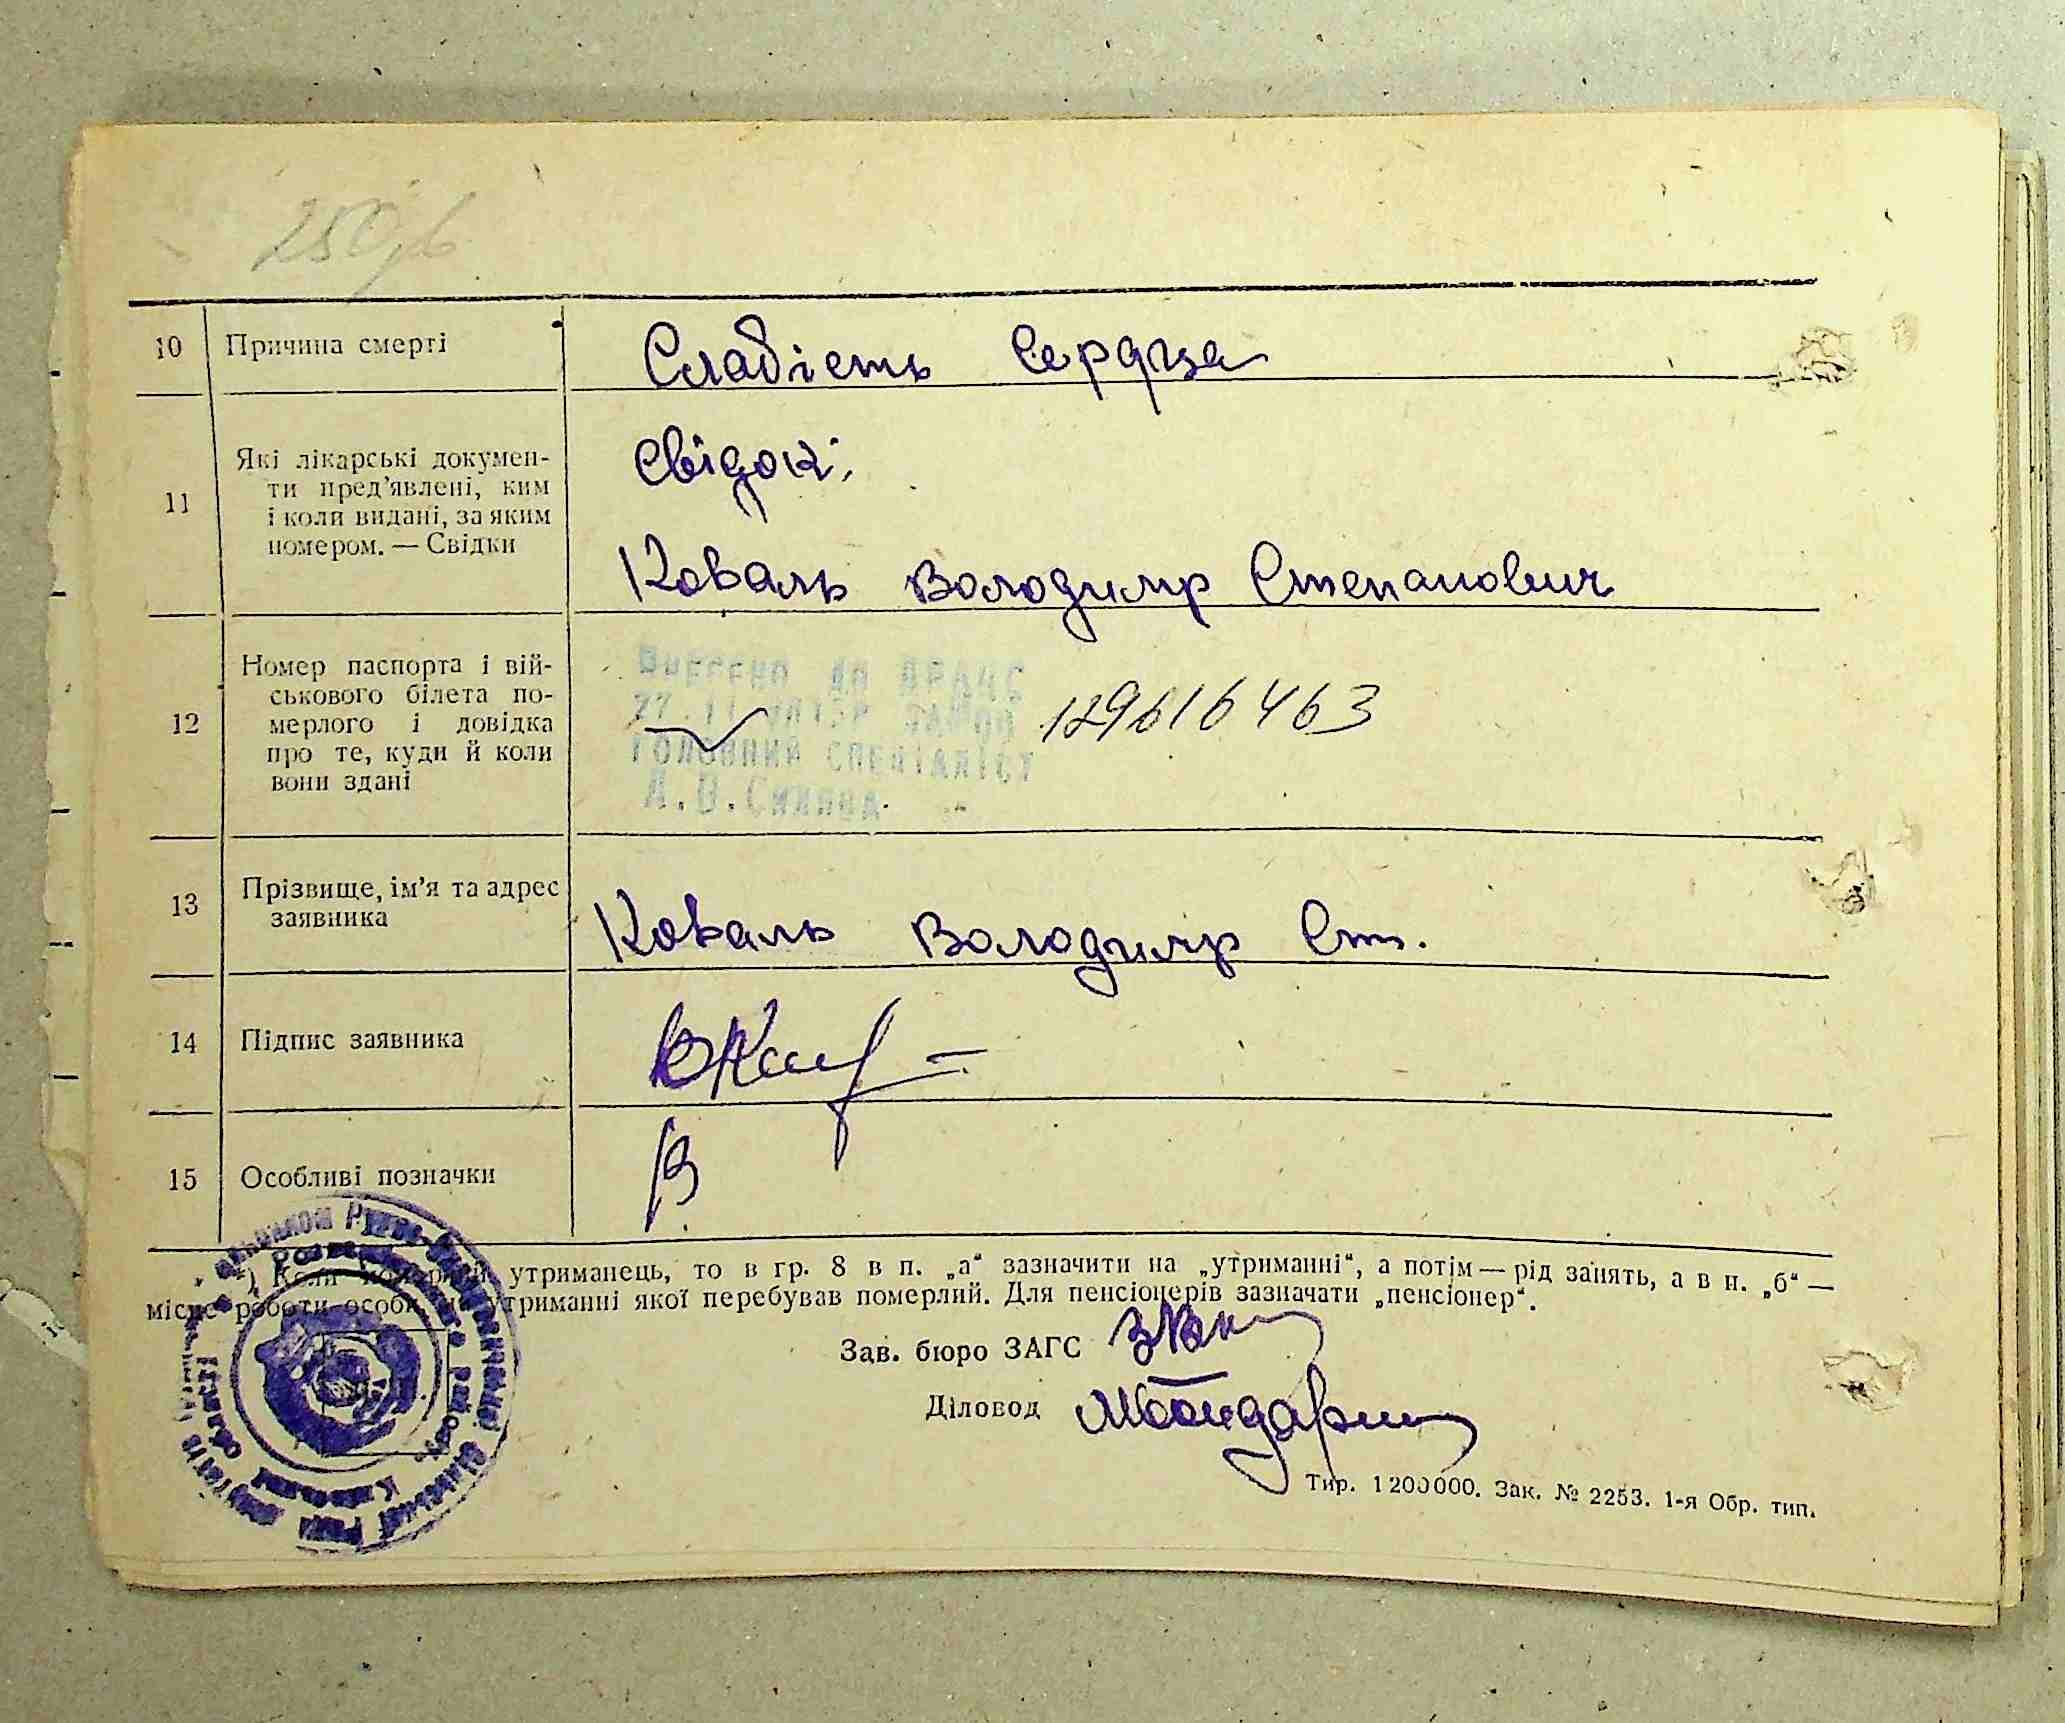 250
10 Причина смерті Слабість Сердца
11 Які лікарські докумен-
ти пред'явлені, ким
і коли видані, за яким
номером. — Свідки
Свідок:
Коваль Володимир Степанович
12 Номер паспорта і вій-
ськового білета по-
мерлого і довідка
про те, куди й коли
вони здані
Внесено до ДРАЦС
головний спеціаліст
129616463
13 Прізвище, ім'я та адрес
заявника
Коваль Володимир Ст.
14 Підпис заявника
15 Особливі позначки
*) Коли померлий утриманець, то в гр. 8 в п. „а“ зазначити на „утриманні“, а потім — рід занять, а в п. „б“ —
місце роботи особи, на утриманні якої перебував померлий. Для пенсіонерів зазначати „пенсіонер“.
Зав. бюро ЗАГС
Діловод
Тир. 1200000. Зак. № 2253. 1-я Обр. тип.